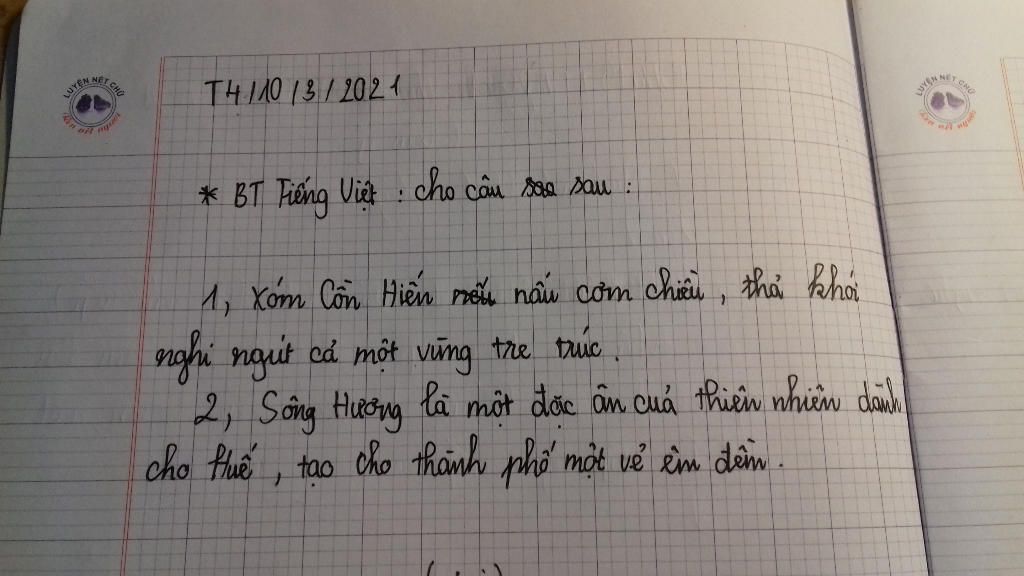 LUYỆN NÉT CHỮ
rèn nết người
LUYỆN NÉT CHỮ
rèn nết người
T4/10/3/2021
* BT Tiếng Việt : Cho câu sau :
1, Xóm Cồn Hiến nấu cơm chiều, thả khói
nghi ngút cả một vũng tre trúc.
2, Sông Hương là một đặc ân cuả thiên nhiên dành
cho Huế, tạo cho thành phố một vẻ êm đềm.